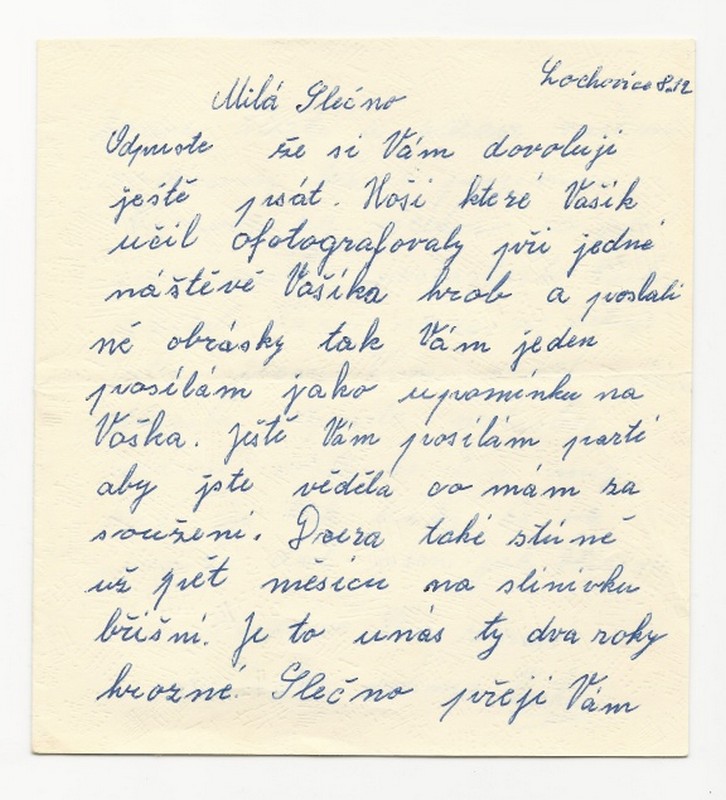 Lochovice 8.12
Milá Slečno
Odpuste že si Vám dovoluji
ještě psát. Hoši které Vašík
učil ofotografovaly při jedné
náštěvě Vašíka hrob a poslali
mě obrásky tak Vám jeden
posílám jako upomínku na
Vaška. Ještě Vám posílám parté
aby jste věděla co mám za
soužení. Dcera také stůně
už pět měsícu na slinivku
břišní. Je to unás ty dva roky
hrozné. Slečno přeji Vám